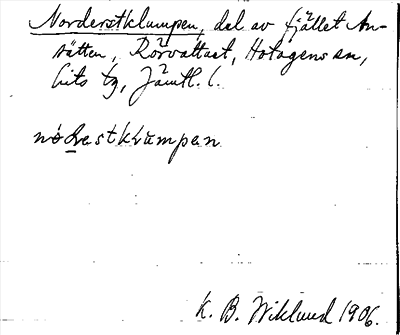 Norderstklumpen, del av fjället An-
sätten, Rörvattnet, Hotagens sn,
Lits tg, Jämtl. l.
nórestklumpen
K. B. Wiklund 1906.